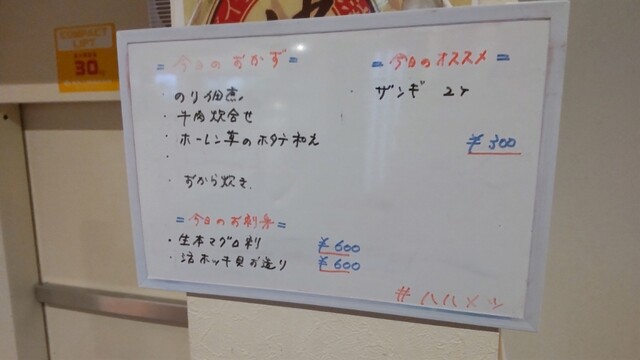 COMPACT
LIFT
30
= 今日のおかず =
・のり佃煮
・牛肉炊合せ
・ホーレン草のホタテ和え
・
・おから炊き
= 今日のお刺身 =
・生本マグロ刺 ¥600
・活ホッキ貝お造り ¥600
= 今日のオススメ =
・ザンギ 2ケ
¥300
# ハハメシ